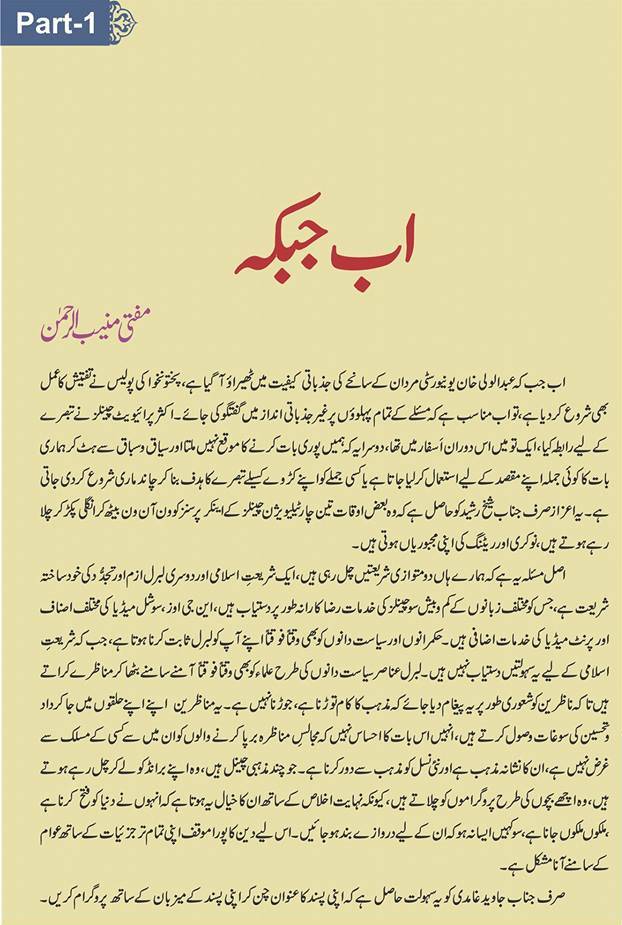 Part-1
اب جبکہ
مفتی منیب الرحمٰن
اب جب کہ عبدالولی خان یونیورسٹی مردان کے سانحے کی جذباتی کیفیت میں ٹھیراؤ آ گیا ہے، پختونخوا کی پولیس نے تفتیش کا عمل
بھی شروع کر دیا ہے، تو اب مناسب ہے کہ مسئلے کے تمام پہلوؤں پر غیر جذباتی انداز میں گفتگو کی جائے۔ اکثر پرائیویٹ چینلز نے تبصرے
کے لیے رابطہ کیا، ایک تو میں اس دوران اَسفار میں تھا، دوسرا یہ کہ ہمیں پوری بات کرنے کا موقع نہیں ملتا اور سیاق و سباق سے ہٹ کر ہماری
بات کا کوئی جملہ اپنے مقصد کے لیے استعمال کر لیا جاتا ہے یا کسی جملے کو اپنے کڑوے کسیلے تبصرے کا ہدف بنا کر چاند ماری شروع کر دی جاتی
ہے۔ یہ اعزاز صرف جناب شیخ رشید کو حاصل ہے کہ وہ بعض اوقات تین چار ٹیلیویژن چینلز کے اینکر پرسنز کو ون آن ون بیٹھ کر انگلی پکڑ کر چلا
رہے ہوتے ہیں، نوکری اور ریٹنگ کی اپنی مجبوریاں ہوتی ہیں۔
اصل مسئلہ یہ ہے کہ ہمارے ہاں دو متوازی شریعتیں چل رہی ہیں، ایک شریعتِ اسلامی اور دوسری لبرل ازم اور تجدُّد کی خود ساختہ
شریعت ہے، جس کو مختلف زبانوں کے کم و بیش سو چینلز کی خدمات رضا کارانہ طور پر دستیاب ہیں، این جی اوز، سوشل میڈیا کی مختلف اصناف
اور پرنٹ میڈیا کی خدمات اضافی ہیں۔ حکمرانوں اور سیاست دانوں کو بھی وقتاً فوقتاً اپنے آپ کو لبرل ثابت کرنا ہوتا ہے، جب کہ شریعتِ
اسلامی کے لیے یہ سہولتیں دستیاب نہیں ہیں۔ لبرل عناصر سیاست دانوں کی طرح علماء کو بھی وقتاً فوقتاً آمنے سامنے بٹھا کر مناظرے کراتے
ہیں تاکہ ناظرین کو شعوری طور پر یہ پیغام دیا جائے کہ مذہب کا کام توڑنا ہے، جوڑنا نہیں ہے۔ یہ مناظرین اپنے اپنے حلقوں میں جا کر داد
و تحسین کی سوغات وصول کرتے ہیں، انہیں اس بات کا احساس نہیں کہ مجالسِ مناظرہ برپا کرنے والوں کو ان میں سے کسی کے مسلک سے
غرض نہیں ہے، ان کا نشانہ مذہب ہے اور نئی نسل کو مذہب سے دور کرنا ہے۔ جو چند مذہبی چینل ہیں، وہ اپنے برانڈ کو لے کر چل رہے ہوتے
ہیں، وہ اچھے بچوں کی طرح پروگراموں کو چلاتے ہیں، کیونکہ نہایت اخلاص کے ساتھ ان کا خیال یہ ہوتا ہے کہ انہوں نے دنیا کو فتح کرنا ہے
، ملکوں ملکوں جانا ہے، سو کہیں ایسا نہ ہو کہ ان کے لیے دروازے بند ہو جائیں۔ اس لیے دین کا پورا موقف اپنی تمام تر جزئیات کے ساتھ عوام
کے سامنے آنا مشکل ہے۔
صرف جناب جاوید غامدی کو یہ سہولت حاصل ہے کہ اپنی پسند کا عنوان چن کر اپنی پسند کے میزبان کے ساتھ پروگرام کریں۔